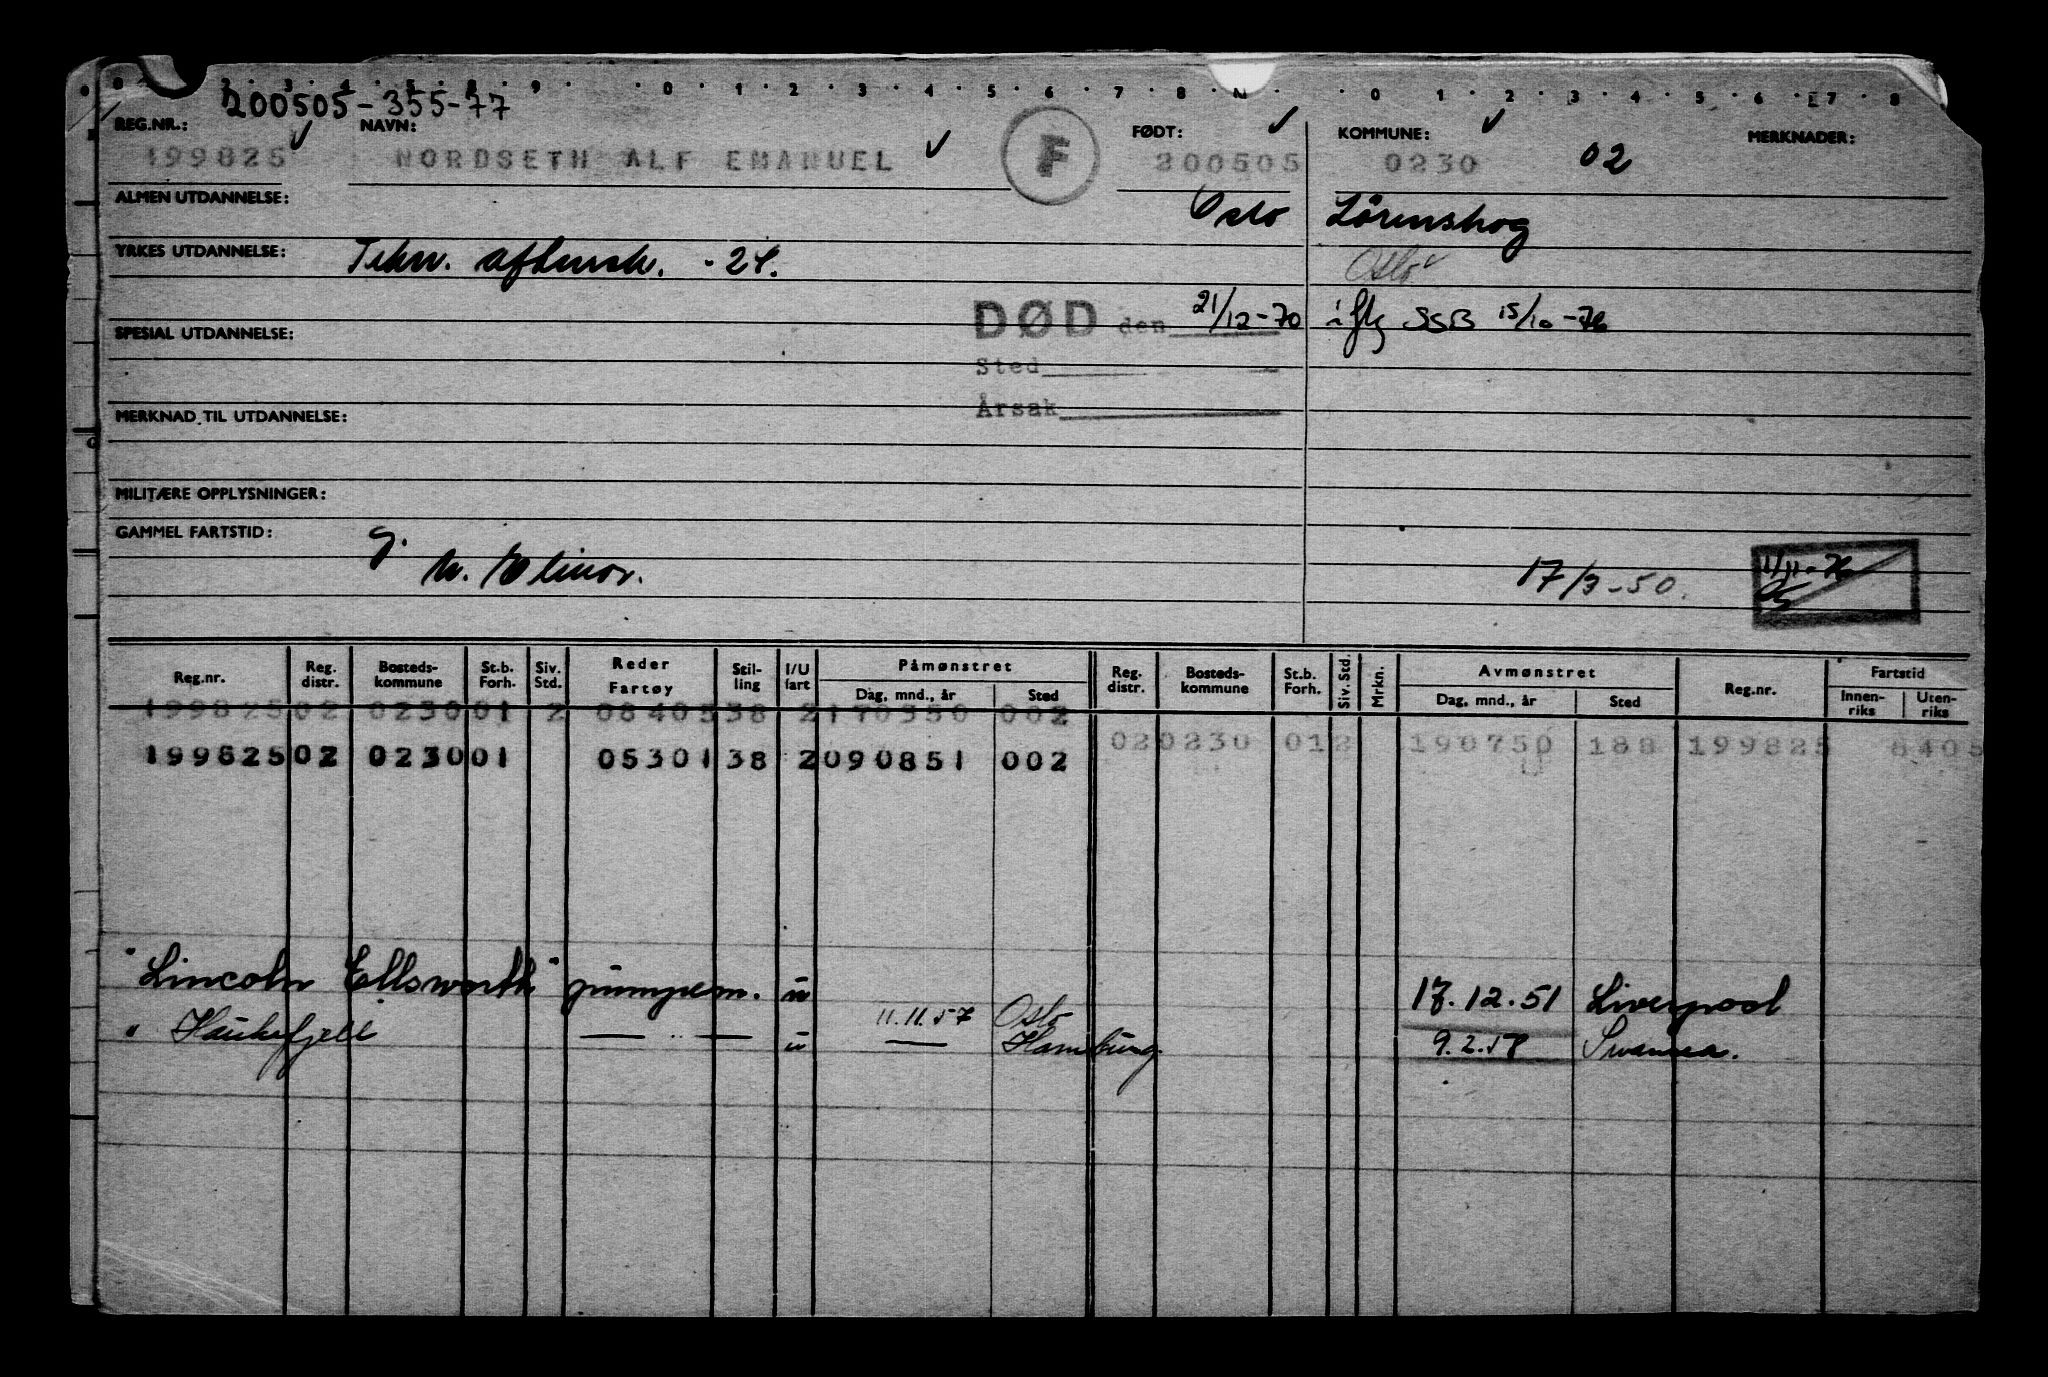 200505-355-77
REG.NR.: NAVN: FØDT: KOMMUNE: MERKNADER:
199825 NORDSETH ALF EMANUEL F 200505 0230 02
ALMEN UTDANNELSE: Oslo Lörenskog
YRKES UTDANNELSE: Tekn. aftensk. -24. Oslo
DØD den 21/12-70 iflg SSB 15/10-76
SPESIAL UTDANNELSE:
Sted
Årsak
MERKNAD TIL UTDANNELSE:
MILITÆRE OPPLYSNINGER:
GAMMEL FARTSTID: g.
h. Elinor. 17/3-50. 11/11-76
Reg.nr. Reg. distr. Bosteds-kommune St.b. Forh. Siv. Std. Reder Fartøy Stil-ling I/U fart Påmønstret Dag, mnd., år Sted Reg. distr. Bosteds-kommune St.b. Forh. Siv. Std. Mrkn. Avmønstret Dag, mnd., år Sted Reg.nr. Fartstid Innen-riks Uten-riks
199825 02 0230 01 2 08405 38 2 170350 002
02 0230 01 2 190750 188 199825 8405
199825 02 0230 01 05301 38 2 090851 002
"Lincoln Ellsworth" pumpem. u 17.12.51 Liverpool
" Haukefjell — " — u 11.11.57 Oslo
— Hamburg. 9.2.58 Swansea.